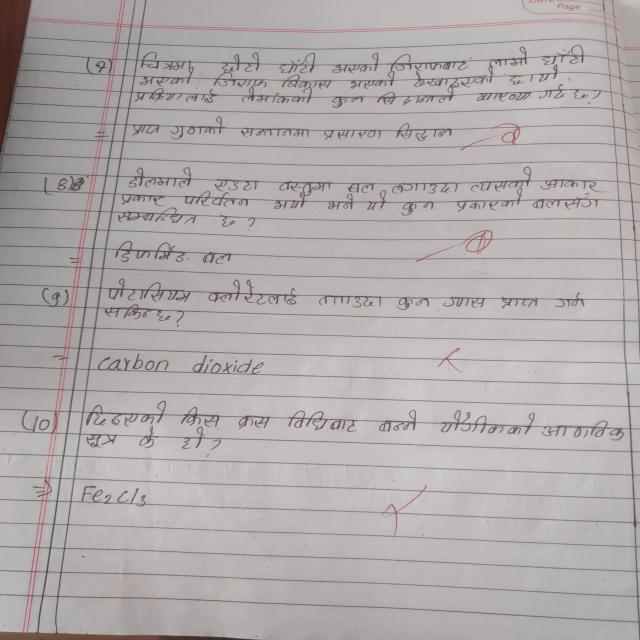 Page
(7) चित्रमा छोटो घाँटी भएको जिराफबाट लामो घाँटी
भएको जिराफ विकास भएको देखाइएको छ। यो
प्रक्रियालाई लेमार्कको कुन सिद्धान्तले व्याख्या गर्दछ?
= प्राप्त गुणको सन्तानमा प्रसारण सिद्धान्त
(8) डोल्माले एउटा वस्तुमा बल लगाउदा त्यसको आकार
प्रकार परिवर्तन भयो भने यो कुन प्रकारको बलसँग
सम्बन्धित छ?
= डिफर्मिङ बल
(9) पोटासियम क्लोरेटलाई तताउदा कुन ग्यास प्राप्त गर्न
सकिन्छ?
= carbon dioxide
(10) दिइएको क्रिस क्रस विधिबाट बन्ने यौगिकको आणविक
सूत्र के हो?
⇒ Fe2Cl3